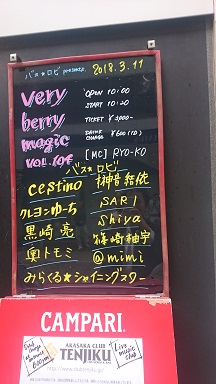 バス★ロビ presents. 2018.3.11
very OPEN 10:00
berry START 10:20
magic TICKET ¥2,000-
DRINK CHARGE ¥600(1D)
vol.108 [MC] RYO-KO
バス★ロビ
cestino 榊音結依
クレヨンゆーち SARI
黒崎亮 Shiya
奥トモミ 篠崎紬宇
@mimi
みらくる★シャイニングスター
CAMPARI
ARASAKA CLUB
TENJIKU
Live music club